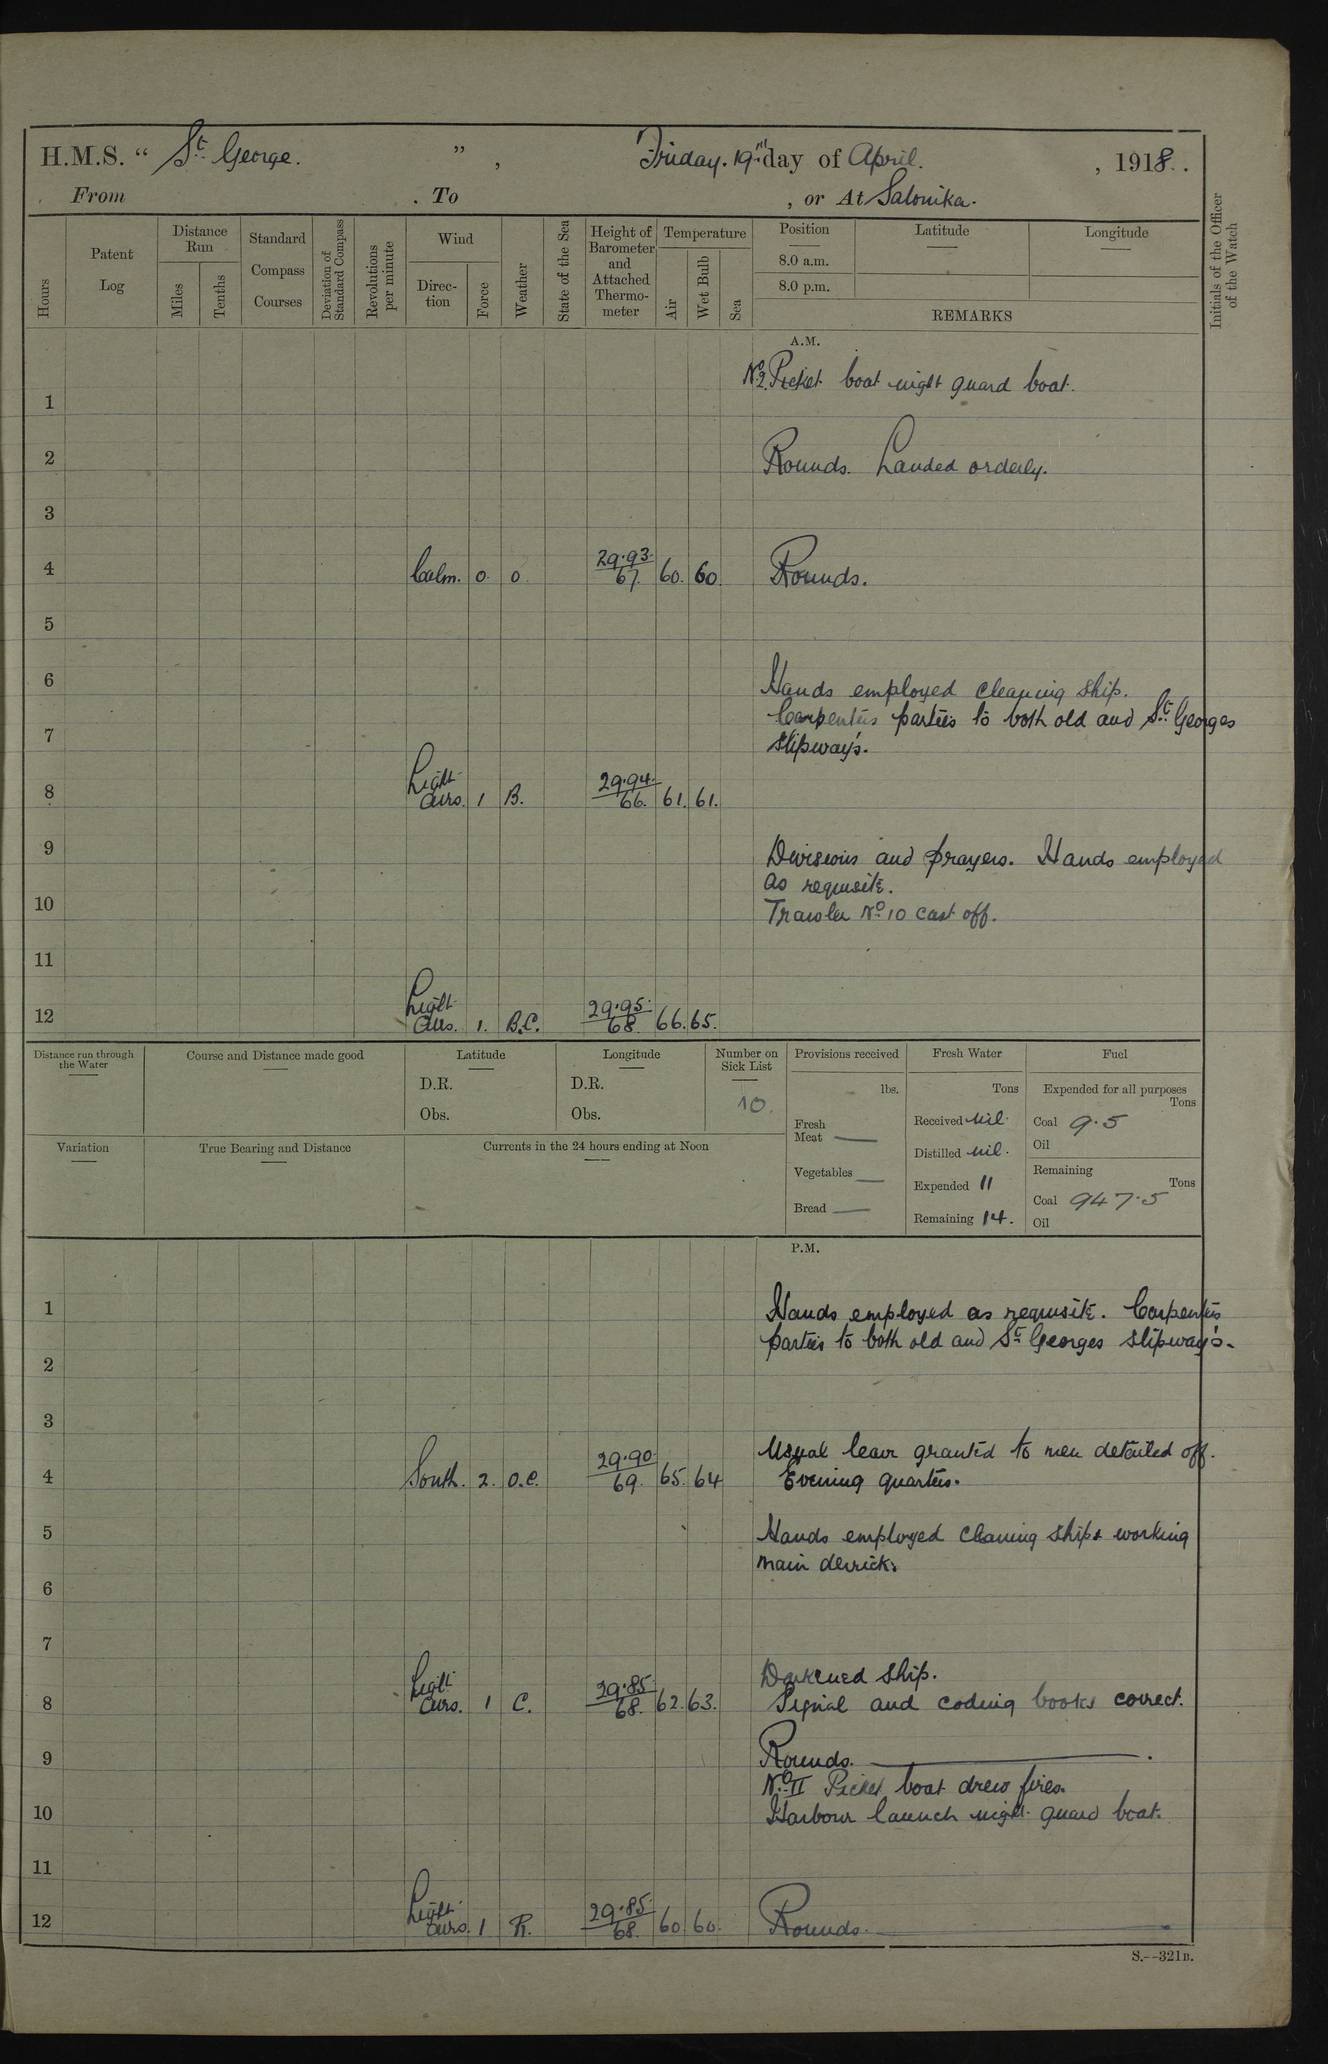 H.M.S. “ St. George. ” , Friday. 19th day of April. , 1918.
From . To , or At Salonika.
Hours
Patent Log
Distance Run
Miles
Tenths
Standard Compass Courses
Deviation of Standard Compass
Revolutions per minute
Wind
Direction
Force
Weather
State of the Sea
Height of Barometer and Attached Thermometer
Temperature
Air
Wet Bulb
Sea
Position
8.0 a.m.
8.0 p.m.
Latitude
Longitude
REMARKS
Initials of the Officer of the Watch
A.M.
No. 2. Picket boat night guard boat.
1
2 Rounds. Landed orderly.
3
4 Calm. 0. o. 29.93. 67. 60. 60. Rounds.
5
6 Hands employed cleaning ship.
Carpenters parties to both old and St. Georges
7 slipway's.
8 Light airs. 1 B. 29.94. 66. 61. 61.
9 Divisions and prayers. Hands employed
as requisite.
10 Trawler No. 10 cast off.
11
12 Light airs. 1. B.C. 29.95. 68. 66. 65.
Distance run through the Water
Course and Distance made good
Latitude
D.R.
Obs.
Longitude
D.R.
Obs.
Number on Sick List
10.
Provisions received
lbs.
Fresh Meat —
Vegetables —
Bread —
Fresh Water
Tons
Received Nil.
Distilled Nil.
Expended 11
Remaining 14.
Fuel
Expended for all purposes
Tons
Coal 9.5
Oil
Remaining
Tons
Coal 947.5
Oil
Variation
True Bearing and Distance
Currents in the 24 hours ending at Noon
P.M.
1 Hands employed as requisite. Carpenters
parties to both old and St. Georges slipway's.
2
3
Usual leave granted to men detailed off.
4 South. 2. O.C. 29.90. 69. 65. 64 Evening quarters.
5 Hands employed cleaning ship & working
main derrick.
6
7
Darkened ship.
8 Light airs. 1 C. 29.85. 68. 62. 63. Signal and coding books correct.
9 Rounds.
No. II Picket boat drew fires.
10 Harbour launch night guard boat.
11
12 Light airs. 1 R. 29.85. 68. 60 60. Rounds.
S.--321B.